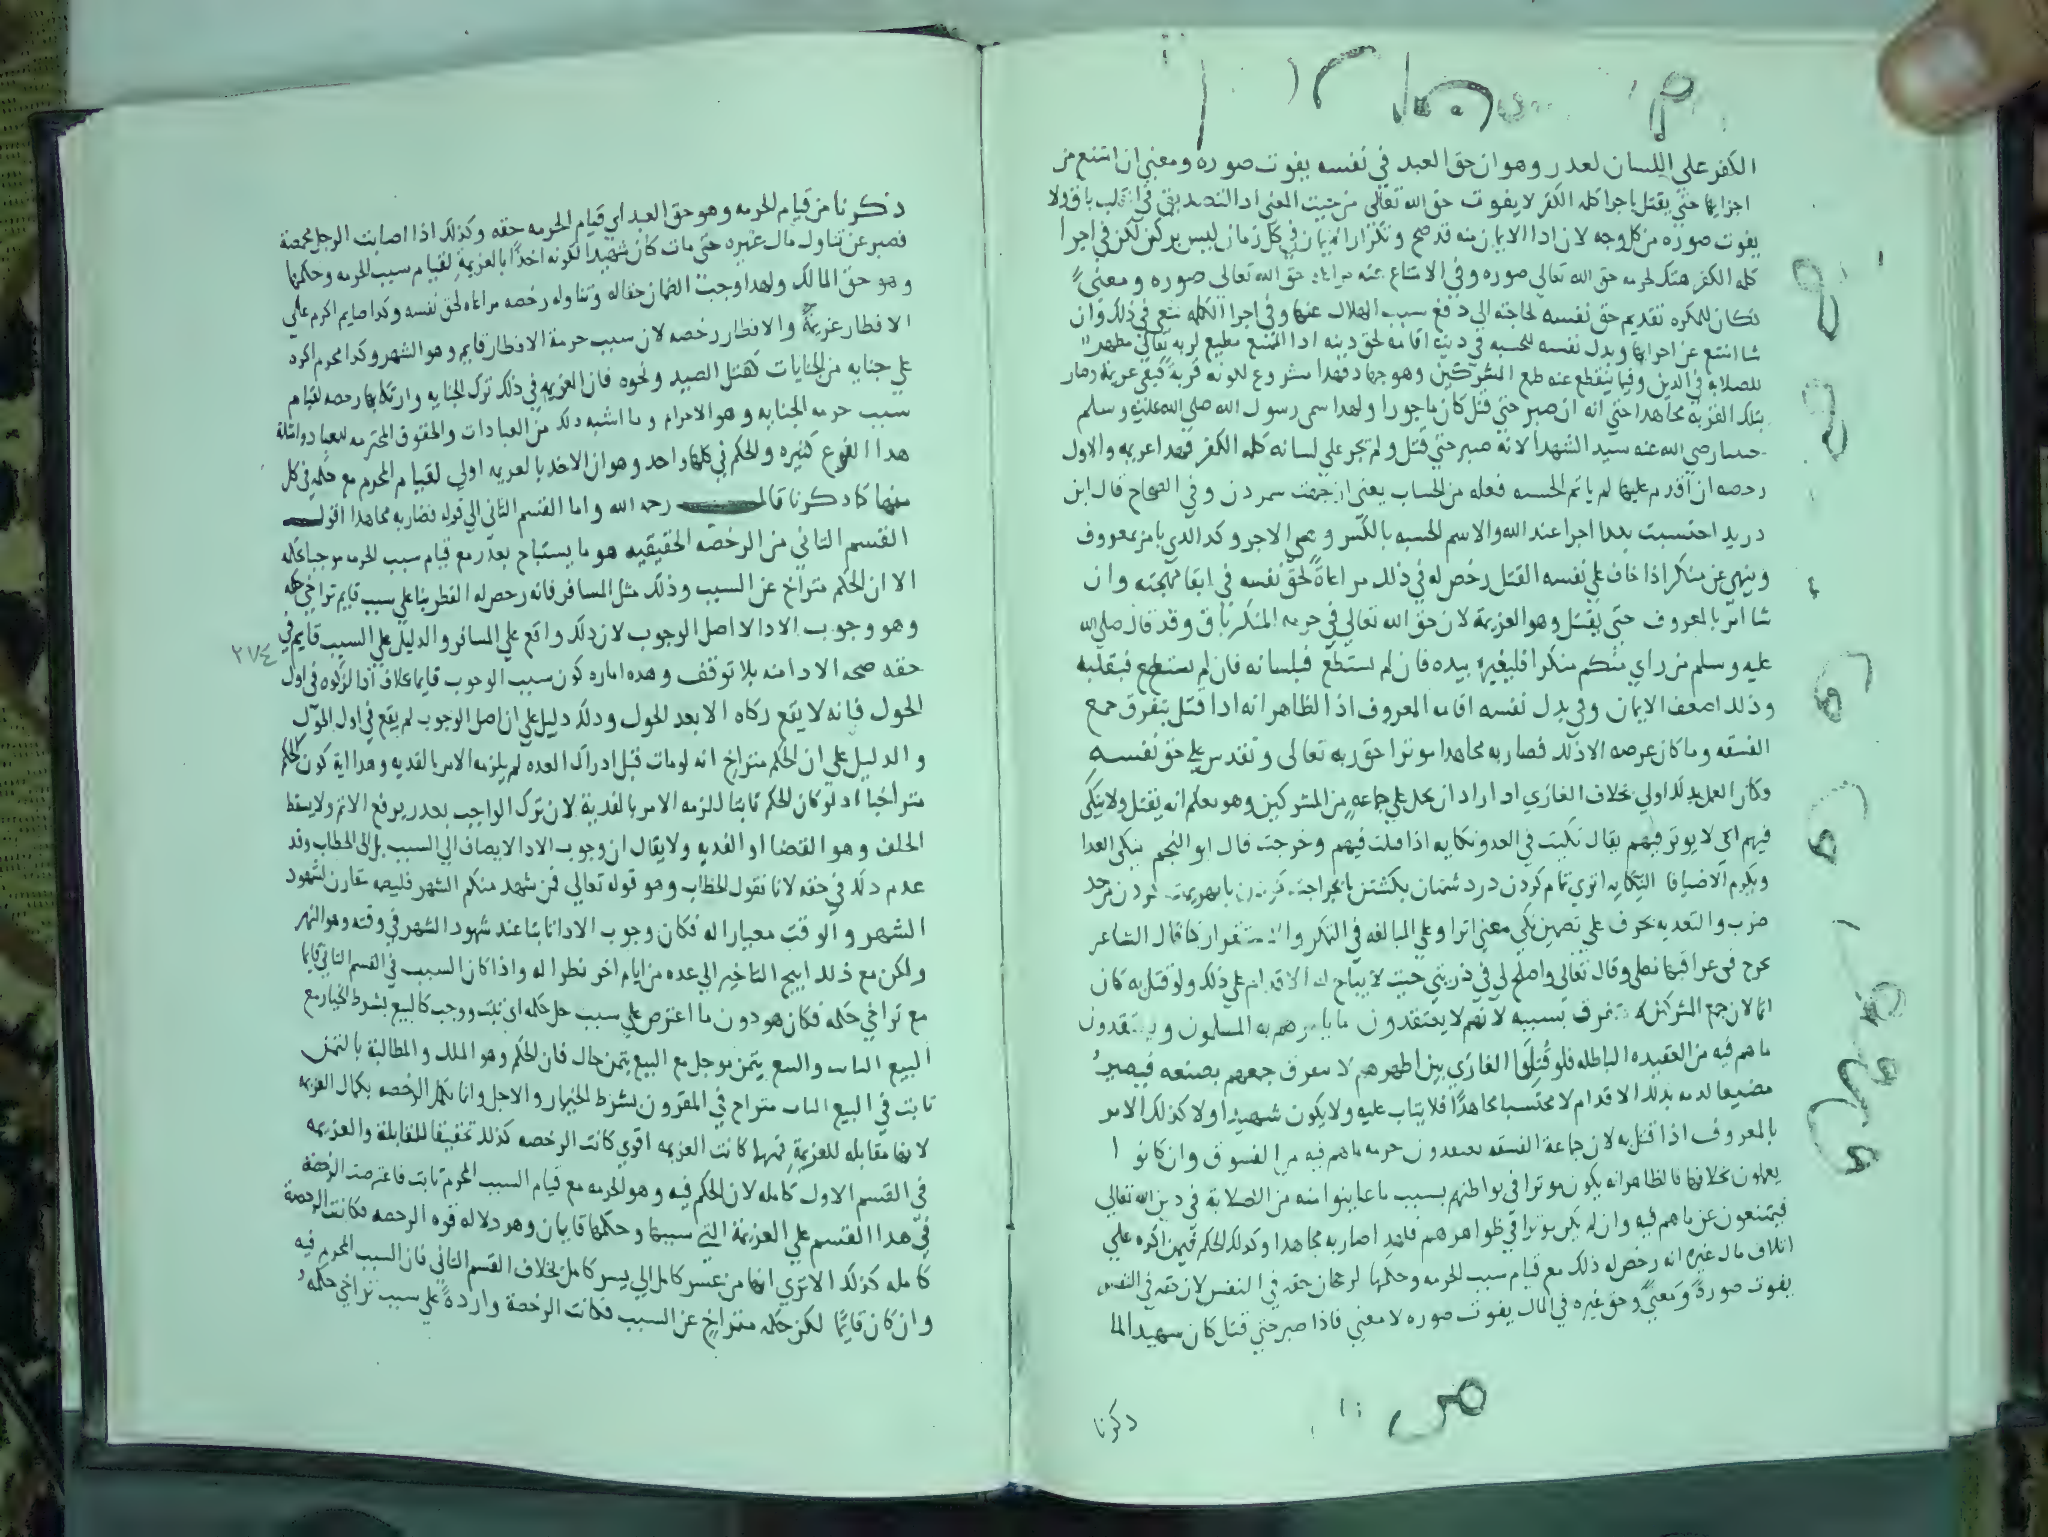 الكفر على اللسان لعدر وهو ان حق العبد في نفسه يفوت صوره ومعني ان امتنع من
اجرايها حتي يقتل باجرا كلمه الكفر لا يفوت حق الله تعالى من حيث المعني اذ التصديق في القلب باق ولا
يفوت صوره من كل وجه لان ادا الايمان منه قد صح وتكرار الايمان في كل زمان ليس بركن لكن في اجرا
كلمه الكفر هتك لحرمه حق الله تعالى صوره وفي الامتناع عنه مراعاه حق الله تعالى صوره ومعنيً
فكان للمكره تقديم حق نفسه لحاجته الي دفع سبب الهلاك عنها وفي اجرا الكلمه سعي في ذلك وان
شا امتنع عن اجرايها وبدل نفسه للحسبه في دينه اقامه لحق دينه اذا الممتنع مطيع لربه تعالى مظهر
للصلابه في الدين وفيما ينقطع عنه طمع المشركين وهو جهاد فهدا مشروع لكونه قربة فبقي عزيمة وصار
بتلك القربة مجاهدا حتي انه ان صبر حتي قتل كان ماجورا ولهدا سمي رسول الله صلى الله عليه وسلم
خبيبا رضي الله عنه سيد الشهدا لانه صبر حتي قتل ولم تجر علي لسانه كلمه الكفر فهدا عزيمه والاول
رخصه ان اقدم عليها لم ياثم الحسبه فعله من الحساب يعني از جهت سمردن وفي الصحاح قال ابن
دريد احتسبت بكدا اجرا عند الله والاسم الحسبه بالكسر وهي الاجر وكدا الدي يامر بمعروف
وينهي عن منكر اذا خاف علي نفسه القتل رخص له في ذلك مراعاةً لحق نفسه في ابقا مهجته وان
شا امر بالمعروف حتي يُقتل وهو العزيمة لان حق الله تعالى في حرمه المنكر باق وقد قال صلى الله
عليه وسلم من راي منكم منكرا فليغيره بيده فان لم يستطع فبلسانه فان لم يستطع فبقلبه
وذلك اضعف الايمان وفي بدل نفسه اقامه المعروف اذ الظاهر انه ادا قتل يتفرق جمع
الفسقه وما كان غرضه الا ذلك فصار به مجاهدا موثرا حق ربه تعالى وتقدس علي حق نفسه
وكان العمل بدلك اولي بخلاف الغازي ادا اراد ان يحمل علي جماعه من المشركين وهو يعلم انه يقتل ولا ينكي
فيهم اي لا يوثر فيهم يقال نكيت في العدو نكايه اذا قتلت فيهم وجرحت قال ابو النجم ينكي العدا
ويكرم الاضيافا النكايه اثري تمام كردن در دشمنان بكشتن يا بجراحت كردن يا بهزيمت كردن من حد
ضرب والتعديه بحرف علي تضمين نكي معني اثرا وعلي المبالغه في التمكن والاستقرار كما قال الشاعر
يجرح في عراقيبها نصلي وقال تعالى واصلح لي في ذريتي حيث لا يباح له الاقدام علي ذلك ولو قتل به كان
اثما لان جمع المشركين لا يتفرق بسببه لانهم لا يعتقدون ما يامرهم به المسلمون ويعتقدون
ما هم فيه من العقيده الباطله فلو قُتِلَ الغازي بين اظهرهم لا يتفرق جمعهم بصنعه فيصيرُ
مضيعا لدمه بدلك الاقدام لا محتسبا مجاهدًا فلا يثاب عليه ولا يكون شهيدا ولا كذلك الامر
بالمعروف اذا قتل به لان جماعة الفسقه يعتقدون حرمه ما هم فيه من الفسوق وان كانوا
يعملون بخلافها فالظاهر انه يكون موثرا في بواطنهم بسبب ما عاينوا منه من الصلابة في دين الله تعالى
فيمتنعون عن ما هم فيه وان لم يكن موثرا في ظواهرهم فلهدا صار به مجاهدا وكدلك الحكم فيمن اكره علي
اتلاف مال غيره انه رخص له ذلك مع قيام سبب الحرمه وحكمها لرجحان حقه في النفس لان حقه في النفس
يفوت صورةً ومعنيً وحق غيره في المال يفوت صوره لا معني فاذا صبر حتي قتل كان شهيدا لما
دكرنا
ذكرنا من قيام الحرمه وهو حق العبد اي قيام الحرمه حقه وكذلك اذا اصابت الرجل مخمصة
فصبر عن تناول مال غيره حتي مات كان شهيدا لكونه اخدًا بالعزيمةِ لقيام سبب الحرمه وحكمها
وهو حق المالك ولهدا وجبت الضمان حقا له وتناوله رخصه مراعاه لحق نفسه وكدا صايم اكره علي
الافطار عزيمةً والافطار رخصه لان سبب حرمة الافطار قايم وهو الشهر وكدا محرم اكره
علي جنايه من الجنايات كقتل الصيد ونحوه فان العزيمه في ذلك ترك الجنايه وارتكابها رخصه لقيام
سبب حرمه الجنايه وهو الاحرام وما اشبه دلك من العبادات والحقوق المحترمه للعباد وامثلة
هدا النوع كثيره والحكم في كلها واحد وهو ان الاخد بالعزيمه اولي لقيام المحرم مع حكمه في كل
منها كما دكرنا قال رحمه الله واما القسم الثاني الي قوله فصار به مجاهدا اقول
القسم الثاني من الرخصه الحقيقيه هو ما يستباح بعدر مع قيام سبب الحرمه موجبا لحكمه
الا ان الحكم متراخ عن السبب وذلك مثل المسافر فانه رخص له الفطر بنا علي سبب قايم تراخي حكمه
وهو وجوب الادا لا اصل الوجوب لان ذلك واقع علي المسافر والدليل علي السبب قايم في
حقه صحه الادا منه بلا توقف وهده اماره كون سبب الوجوب قايما بخلاف ادا الزكوه في اول
٢٧٤
الحول فانه لا يقع زكاه الا بعد الحول ودلك دليل علي ان اصل الوجوب لم يقع في اول الحول
والدليل علي ان الحكم متراخ انه لو مات قبل ادراك العده لم يلزمه الامر بالفديه وهدا اية كون الحكم
متراخيا اد لو كان الحكم ثابتا للزمه الامر بالفدية لان ترك الواجب بعدر يرفع الاثم ولا يسقط
الخلف وهو القضا او الفديه ولا يقال ان وجوب الادا لا يضاف الي السبب بل الي الخطاب وقد
عدم دلك في حقه لانا نقول الخطاب وهو قوله تعالي فمن شهد منكم الشهر فليصمه مقارن لشهود
الشهر والوقت معيارا له فكان وجوب الادا ثابتا عند شهود الشهر في وقته وهو النهر
ولكن مع ذلك ابيح التاخير الي عده من ايام اخر نظرا له واذا كان السبب في القسم الثاني قايما
مع تراخي حكمه فكان هو دون ما اعترض علي سبب حل حكمه اي ثبت ووجب كالبيع بشرط الخيار مع
البيع البات والبيع بثمن موجل مع البيع بثمن حال فان الحكم وهو الملك والمطالبة بالثمن
ثابت في البيع البات متراخ في المقرون بشرط الخيار والاجل وانما تكمل الرخصه بكمال العزيمه
لانها مقابله للعزيمةِ فمهما كانت العزيمه اقوي كانت الرخصه كذلك تحقيقا للمقابلة والعزيمه
في القسم الاول كامله لان الحكم فيه وهو الحرمه مع قيام السبب المحرم ثابت فاعترضت الرخصة
في هدا القسم علي العزيمة التي سببها وحكمها قايمان وهو دلاله قوه الرخصه فكانت الرخصة
كامله كذلك الا تري انها من عسر كامل الي يسر كامل بخلاف القسم الثاني فان السبب المحرم فيه
وان كان قايمًا لكن حكمه متراخٍ عن السبب فكانت الرخصة واردةً علي سبب تراخي حكمهُ